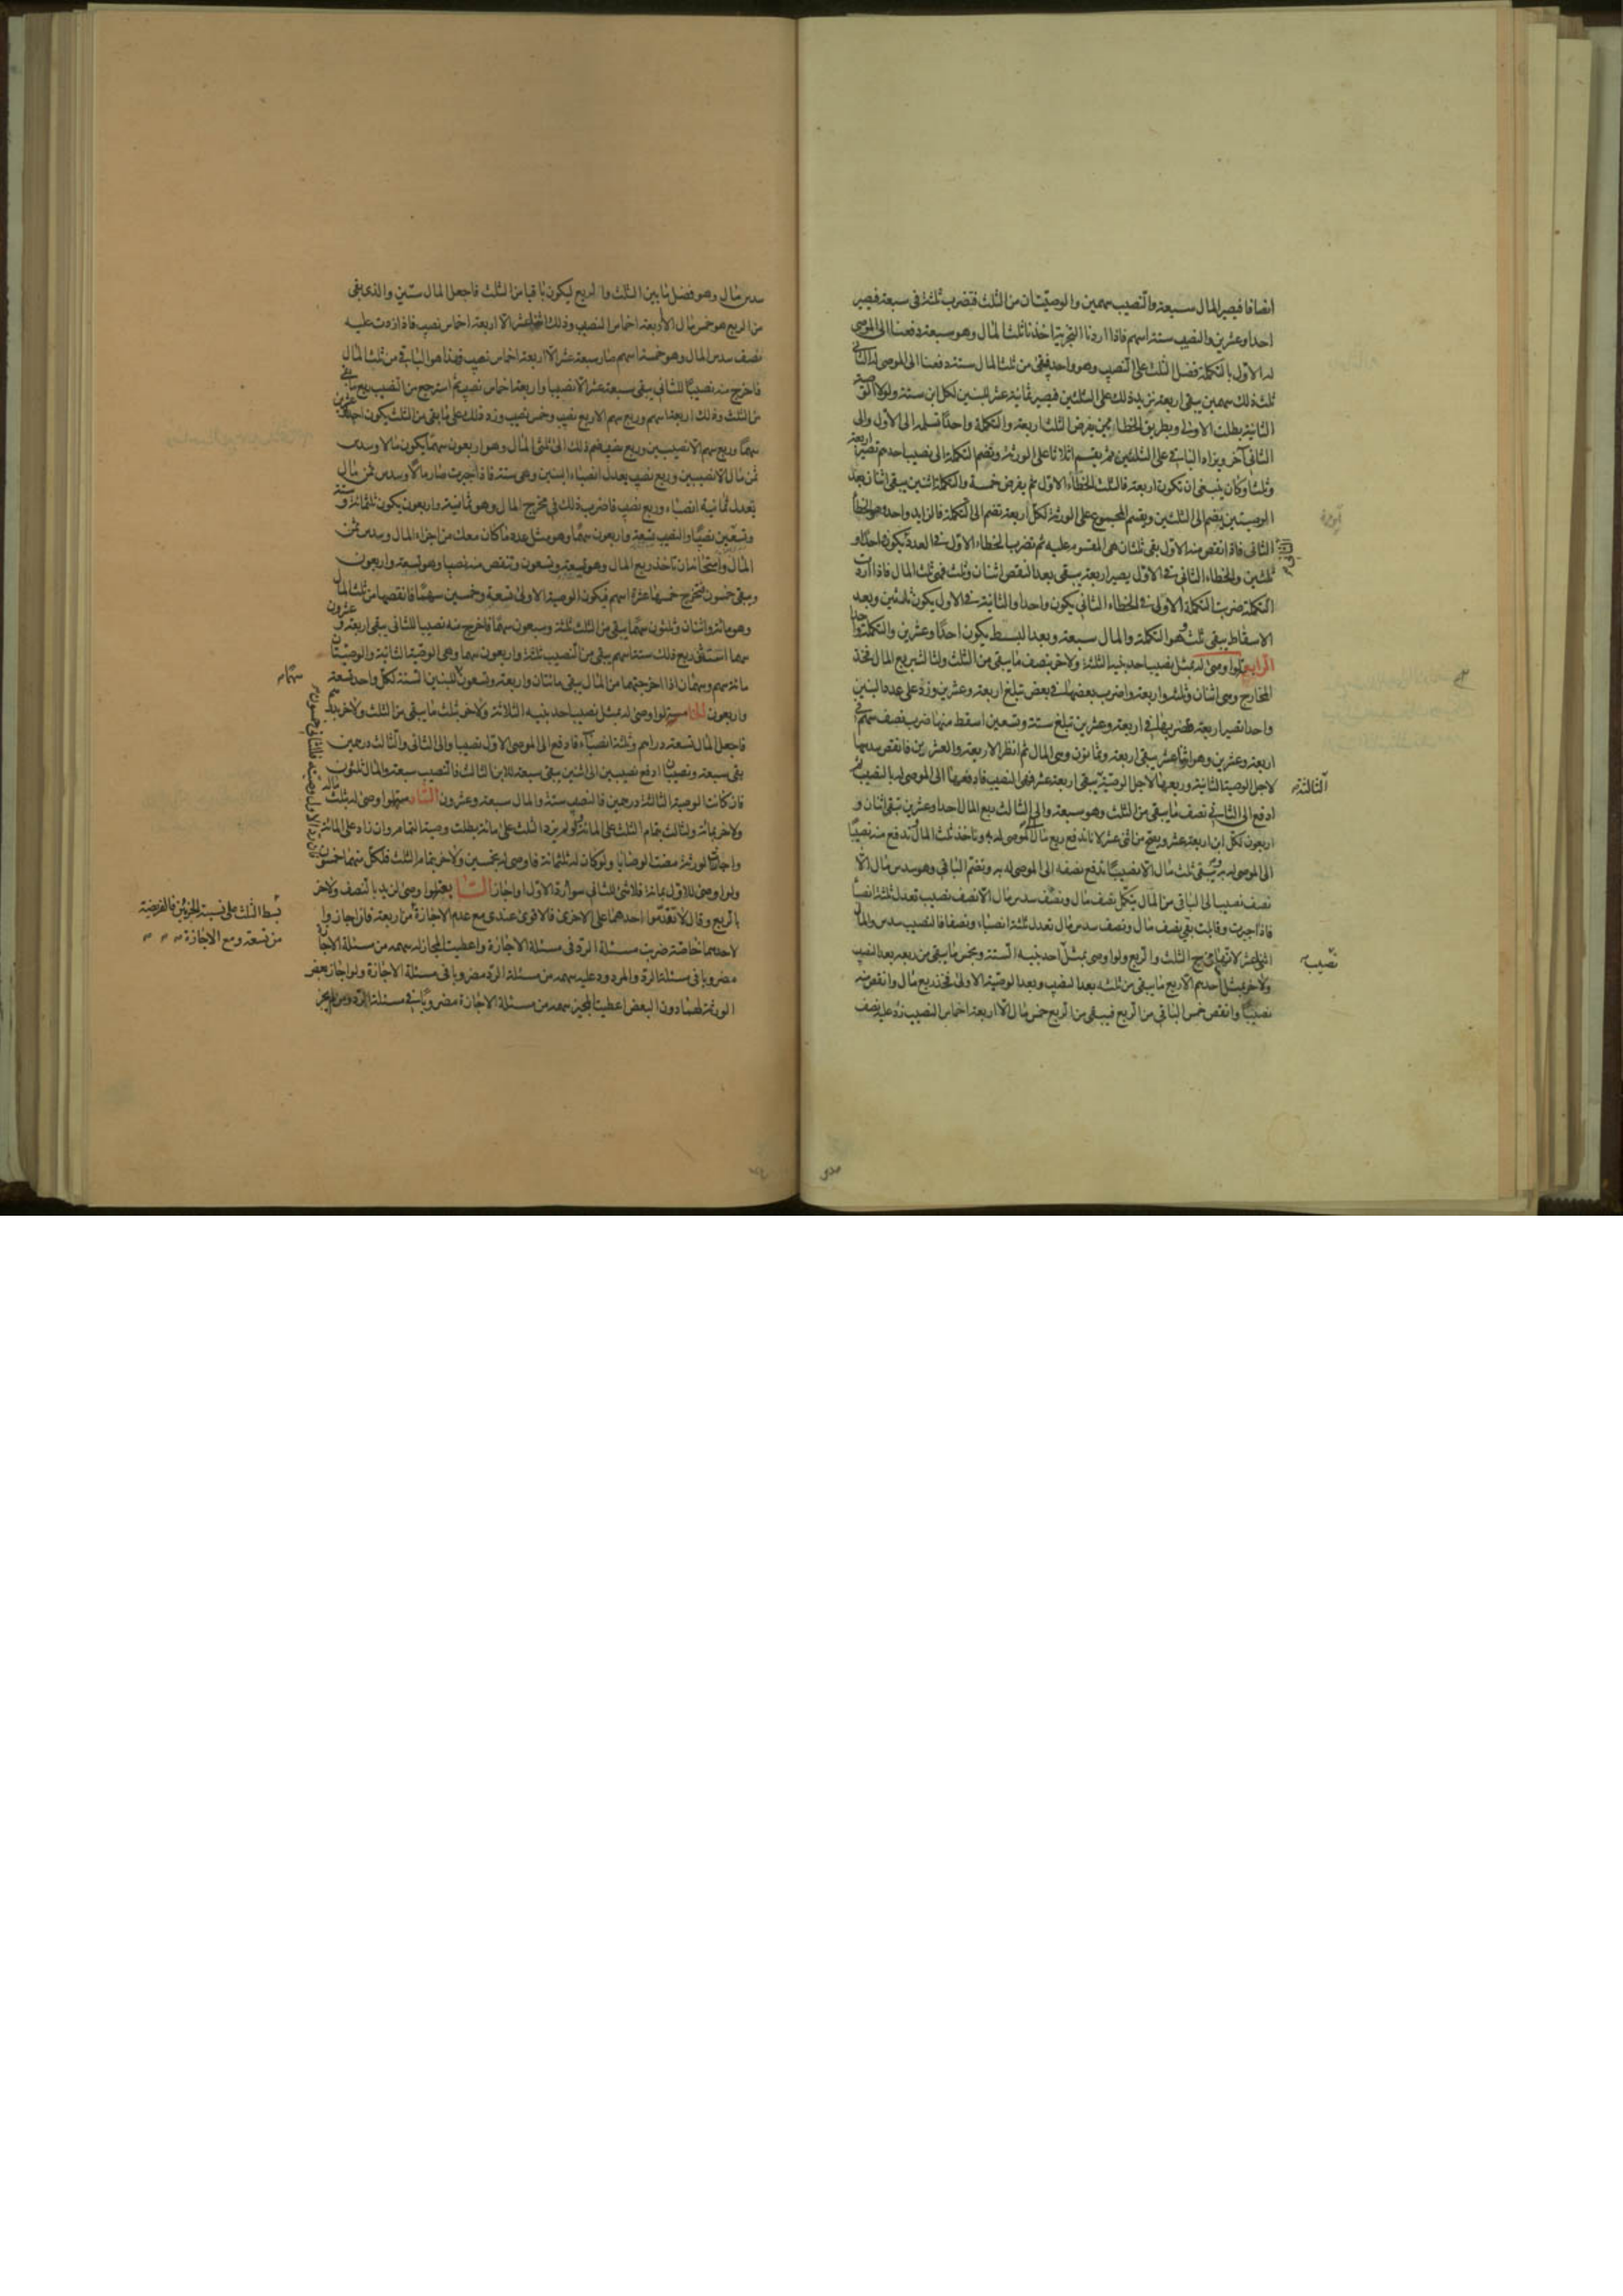 انصافا فيصير المال سبعة والنصيب سهمين والوصيتان من الثلث فتضرب ثلثة في سبعة فيصير
احدا وعشرين والنصيب ستة اسهم فاذا اردنا التجربة اخذنا ثلث المال وهو سبعة دفعنا الى الموصى
له الاول بالتكملة فضل الثلث على النصيب وهو واحد فبقى من ثلث المال ستة دفعنا الى الموصى له الثاني
ثلث ذلك سهمين يبقى اربعة نزيد ذلك على الثلثين فيصير ثمانية عشر للبنين لكل ابن ستة ولولا الوصية
الثانية بطلت الاولى وبطريق الخطاءين يفرض الثلث اربعة والتكملة واحدا تسلمه الى الاول والى
الثاني آخر ويزاد الباقي على الثلثين ثم يقسم اثلاثا على الورثة وتضم التكملة الى نصيب احدهم تصير اربعة
وثلثا وكان ينبغي ان تكون اربعة فالثلث الخطاء الاول ثم يفرض خمسة والتكملة اثنين يبقى اثنان بعد
الوصيتين يضم الى الثلثين ويقسم المجموع على الورثة لكل اربعة تضم الى التكملة فالزايد واحد وهو الخطأ
الثاني فاذا نقص منه الاول بقى ثلثان هي المقسوم عليه ثم تضرب الخطاء الاول في العدد يكون واحدا و
ثلثين والخطاء الثاني في الاول يصير اربعة يبقى بعد النقص اثنان وثلث فهي ثلث المال فاذا اردت
التكملة ضربت التكملة الاولى في الخطاء الثاني يكون واحدا والثانية في الاول يكون ثلثين وبعد
الاسقاط يبقى ثلث وهو التكملة والمال سبعة وبعد البسط يكون احدا وعشرين والتكملة واحدا
الرابع لو اوصى له بمثل نصيب احد بنيه الثلثة ولاخر بنصف ما يبقى من الثلث ولثالث بربع المال فخذ
المخارج وهي اثنان وثلثة واربعة واضرب بعضها في بعض تبلغ اربعة وعشرين وزد على عدد البنين
واحدا تصير اربعة فتضربها في اربعة وعشرين تبلغ ستة وتسعين اسقط منها ضرب نصف سهم في
اربعة وعشرين وهو اثنا عشر يبقى اربعة وثمانون وهي المال ثم انظر الاربعة والعشرين فانقص سدسها
لاجل الوصية الثانية وربعها لاجل الوصية الثالثة يبقى اربعة عشر فهي النصيب فادفعها الى الموصى له بالنصيب ثم
ادفع الى الثاني نصف ما يبقى من الثلث وهو سبعة والى الثالث ربع المال احدا وعشرين تبقى اثنان و
اربعون لكل ابن اربعة عشر ويصح من اثنى عشر لانا ندفع ربع مال الى الموصى له به وناخذ ثلث المال ندفع منه نصيبا
الى الموصى له به يبقى ثلث مال الا نصيبا ندفع نصفه الى الموصى له به ونضم الباقي وهو سدس مال الا
نصف نصيب الى الباقي من المال يتكمل نصف مال ونصف سدس مال الا نصف نصيب تعدل ثلثة انصبا
فاذا جبرت وقابلت بقى نصف مال ونصف سدس مال تعدل ثلثة انصباء ونصفا فالنصيب سدس والمال
اثنى عشر لانها مخرج الثلث والربع ولو اوصى بمثل احد بنيه الستة وبخمس ما يبقى من ربعه بعد النصيب
ولاخر بمثل احدهم الا ربع ما يبقى من ثلثه بعد النصيب وبعد الوصية الاولى فخذ ربع مال وانقص منه
نصيبا وانقص خمس الباقي من الربع فيبقى من الربع خمس مال الا اربعة اخماس النصيب زد عليه نصف
الثالثة
نصيب
سدس مال وهو فضل ما بين الثلث والربع ليكون باقيا من الثلث فاجعل المال ستين والذي بقى
من الربع هو خمس مال الا اربعة اخماس النصيب وذلك اثنا عشر الا اربعة اخماس نصيب فاذا زدت عليه
نصف سدس المال وهو خمسة اسهم صار سبعة عشر الا اربعة اخماس نصيب فهذا هو الباقي من ثلث المال
فاخرج منه نصيبا للثاني يبقى سبعة عشر الا نصيبا واربعة اخماس نصيب ثم استرجع من النصيب ربع ما بقى
من الثلث وذلك اربعة اسهم وربع سهم الا ربع نصيب وخمس نصيب وزد ذلك على ما بقى من الثلث يكون احدا وعشرين
سهما وربع سهم الا نصيبين وربع نصيب فضم ذلك الى ثلثي المال وهو اربعون سهما يكون مالا وسدس
ثمن مال الا نصيبين وربع نصيب يعدل انصباء البنين وهي ستة فاذا جبرت صار مالا وسدس ثمن مال
يعدل ثمانية انصباء وربع نصيب فاضرب ذلك في مخرج المال وهو ثمانية واربعون يكون ثلثمائة وستة
وتسعين نصيبا والنصيب تسعة واربعون سهما وهو مثل عدد ما كان معك من اجزاء المال وسدس ثمن
المال وامتحانه ان تاخذ ربع المال وهو تسعة وتسعون وتنقص منه نصيبا وهو تسعة واربعون
ويبقى خمسون فتخرج خمسها عشرة اسهم فيكون الوصية الاولى تسعة وخمسين سهما فانقصها من ثلث المال
وهو مائة واثنان وثلثون سهما يبقى من الثلث ثلثة وسبعون سهما فاخرج منه نصيبا للثاني يبقى اربعة وعشرون
سهما استثنى ربع ذلك ستة اسهم يبقى من النصيب ثلثة واربعون سهما وهي الوصية الثانية والوصيتان
مائة سهم وسهمان اذا اخرجتهما من المال يبقى مائتان واربعة وتسعون للبنين الستة لكل واحد تسعة
واربعون الخامسة لو اوصى له بمثل نصيب احد بنيه الثلاثة ولاخر بثلث ما يبقى من الثلث ولاخر بدرهم
فاجعل المال تسعة دراهم وثلثة انصباء فادفع الى الموصى الاول نصيبا والى الثاني والثالث درهمين
بقى سبعة ونصيبان ادفع نصيبين الى اثنين يبقى سبعة للابن الثالث فالنصيب سبعة والمال ثلثون
فان كانت الوصية الثالثة درهمين فالنصيب ستة والمال سبعة وعشرون السادسة لو اوصى له بثلث ماله
ولاخر بمائة ولثالث بتمام الثلث على المائة ولم يزد الثلث على مائة بطلت وصية التمام وان زاد على المائة
واجاز الورثة مضت الوصايا ولو كان له ثلثمائة فاوصى له بخمسين ولاخر بتمام الثلث فلكل منهما خمسون
ولو اوصى للاول بمائة فلا شئ للثاني سواء رد الاول او اجاز السابعة لو اوصى لزيد بالنصف ولاخر
بالربع وقال لا تقدموا احدهما على الاخرى فالاقوى عندي مع عدم الاجازة من اربعة فان اجاز وا
لاحدهما خاصة ضربت مسئلة الرد في مسئلة الاجازة واعطيت المجاز له سهمه من مسئلة الاجازة
مضروبا في مسئلة الرد والمردود عليه سهمه من مسئلة الرد مضروبا في مسئلة الاجازة ولو اجاز بعض
الورثة لهما دون البعض اعطيت المجيز سهمه من مسئلة الاجازة مضروبا في مسئلة الرد ومن لم يجز
سهماً
بسط الثلث على نسبة الجزئين فالفريضة
من تسعة ومع الاجازة